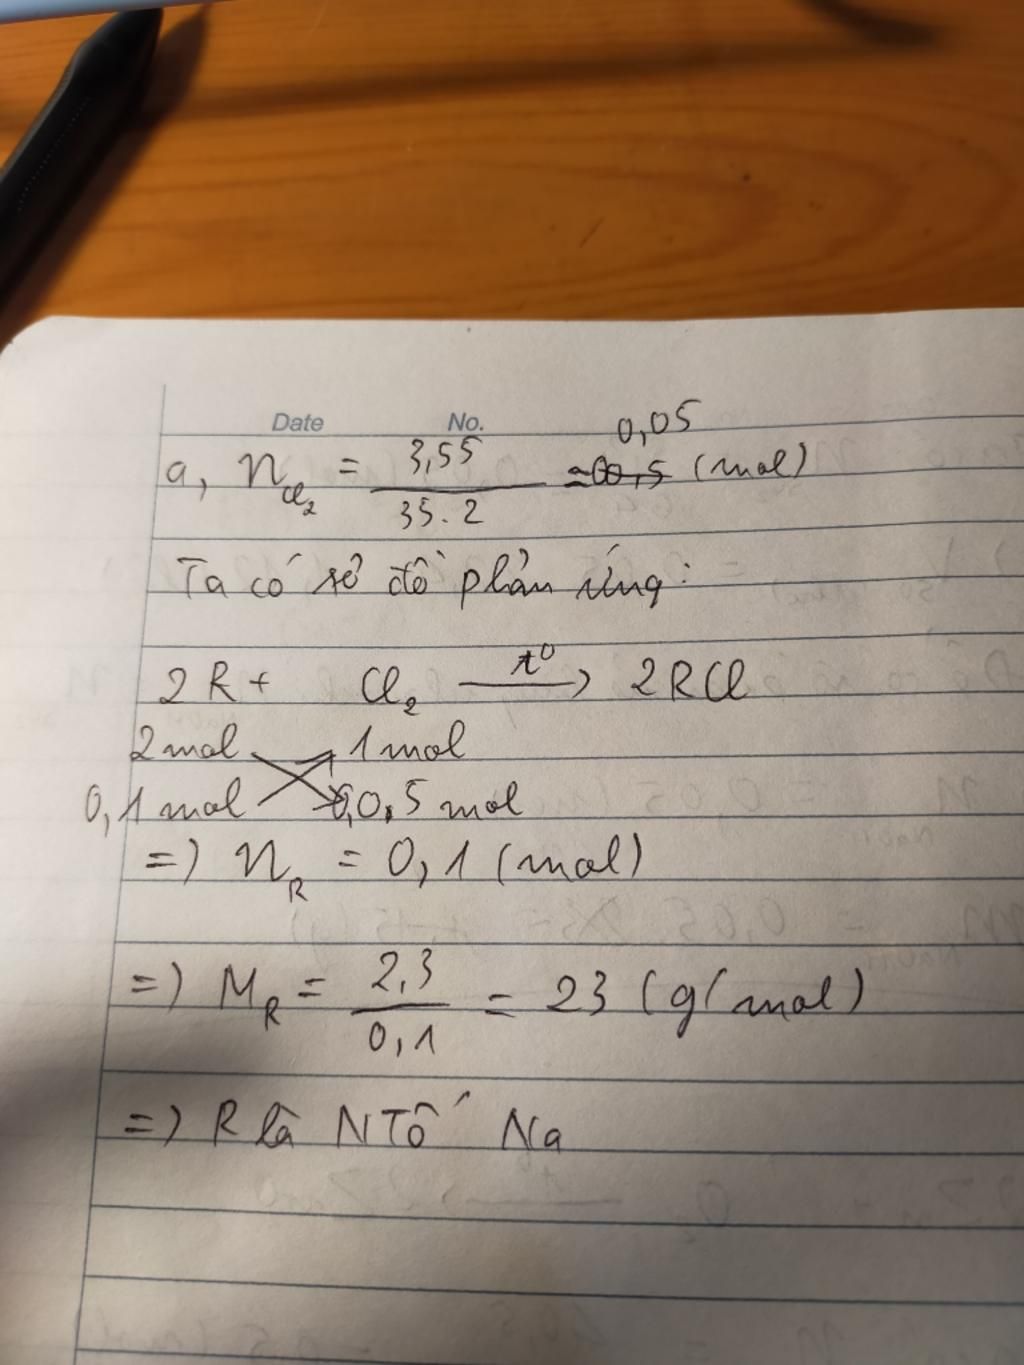 Date No.
0,05
a, n Cl₂ = 3,55 / 35.2 = 00,5 (mol)
Ta có sơ đồ phản ứng:
2R + Cl₂ —t⁰→ 2RCl
2mol 1mol
0,1mol 0,0,5mol
=) n R = 0,1 (mol)
=) M R = 2,3 / 0,1 = 23 (g/mol)
=) R là NTố Na